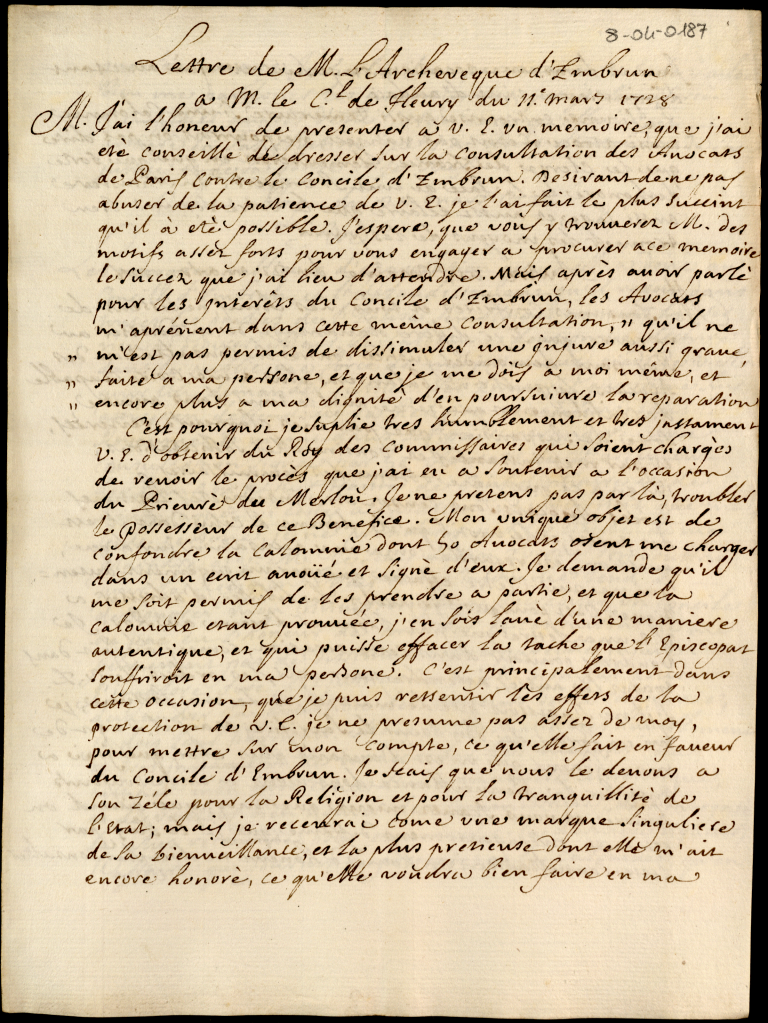 8-04-0187
Lettre de M. L'Archeveque d'Embrun
a M. le C.l de Fleury du 11e mars 1728
M. J'ai l'honeur de presenter a V. E. vn memoire, que j'ai
eté conseillé de dresser sur la consultation des Avocats
de Paris contre le Concile d'Embrun. Desirant de ne pas
abuser de la patience de V. E. je l'ai fait le plus succint
qu'il à eté possible. J'espere, que vous y trouuerez M. des
motifs assez forts pour vous engager a procurer a ce memoire
le succez que j'ai lieu d'attendre. Mais après auoir parlé
pour les interêts du Concile d'Embrun, les Avocats
m'aprénent dans cette même consultation, „ qu'il ne
„ m'est pas permis de dissimuler une injure aussi graue,
„ faite a ma persone, et que je me dois a moi même, et
„ encore plus a ma dignité d'en poursuiure la reparation
C'est pourquoi je suplie tres humblement et tres instament
V. E. d'obtenir du Roy des commissaires qui soient chargés
de reuoir le procès que j'ai eu a soutenir a l'occasion
du Prieuré de Merlou. Je ne pretens pas par là, troubler
le possesseur de ce Benefice. Mon unique objet est de
confondre la calomnie dont 50 Avocats osent me charger
dans un ecrit auoüé et signé d'eux. Je demande qu'il
me soit permis de les prendre a partie, et que la
calomnie etant prouuée, j'en sois laué d'une maniere
autentique, et qui puisse effacer la tache que l'Episcopat
souffriroit en ma persone. C'est principalement dans
cette occasion, que je puis ressentir les effets de la
protection de V. E. je ne presume pas assez de moy,
pour mettre sur mon compte, ce qu'elle fait en faueur
du Concile d'Embrun. Je scais que nous le deuons a
son zéle pour la Religion et pour la tranquillité de
l'Etat; mais je receurai come vne marque singuliere
de sa bienueillance, et la plus pretieuse dont elle m'ait
encore honoré, ce qu'elle voudra bien faire en ma